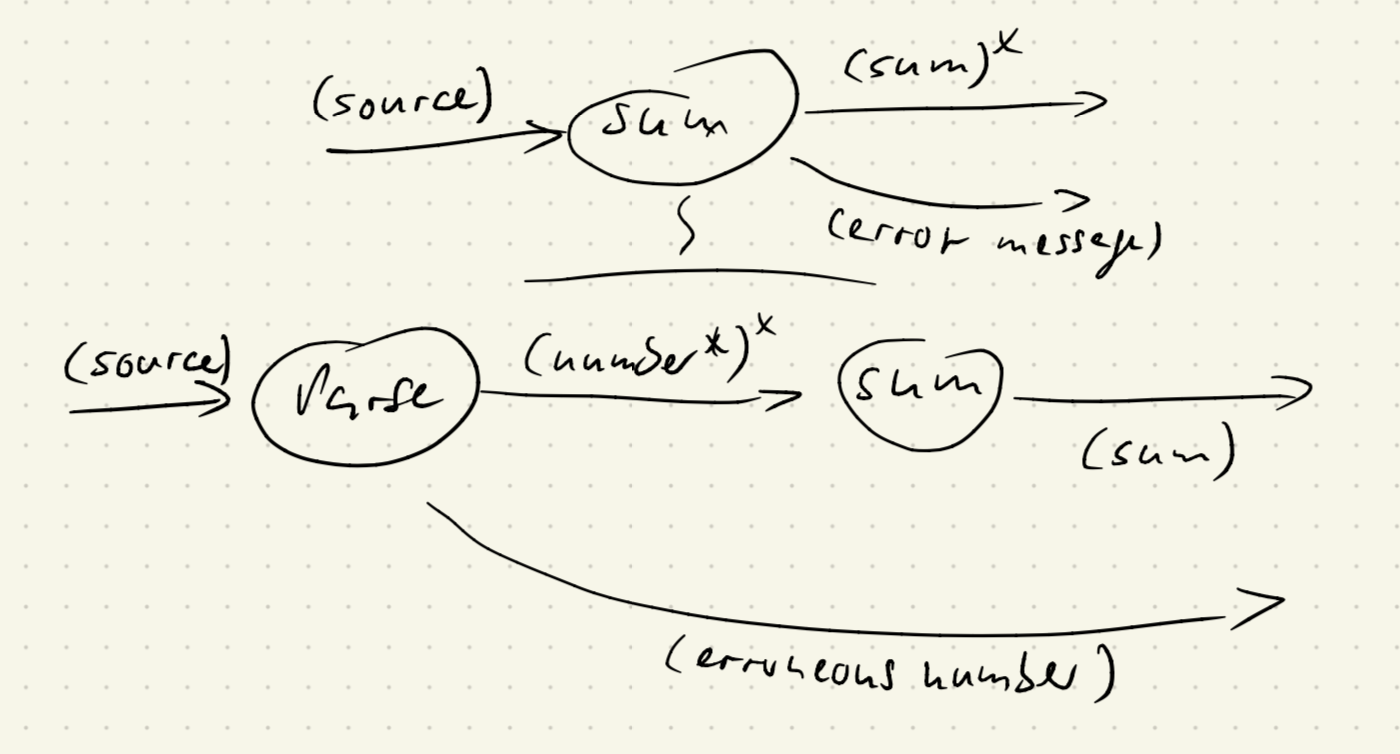 (source)
sum
(sum)*
(error message)
(source)
Parse
(number*)*
sum
(sum)
(erroneous number)